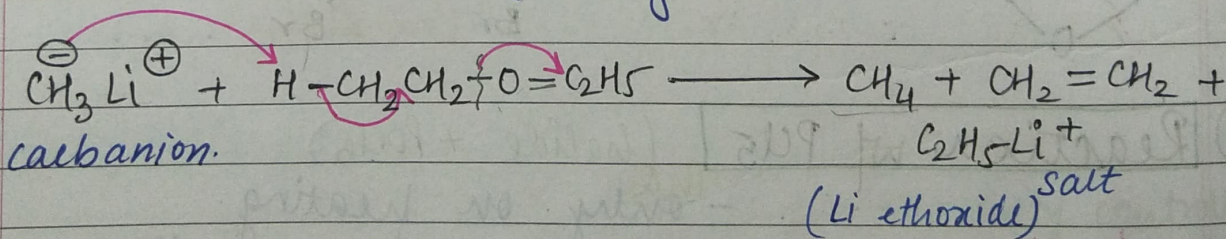 CH3 Li + H-CH2CH2-O=C2H5 ⟶ CH4 + CH2=CH2 +
carbanion.
C2H5-Li+
(Li ethoxide) salt